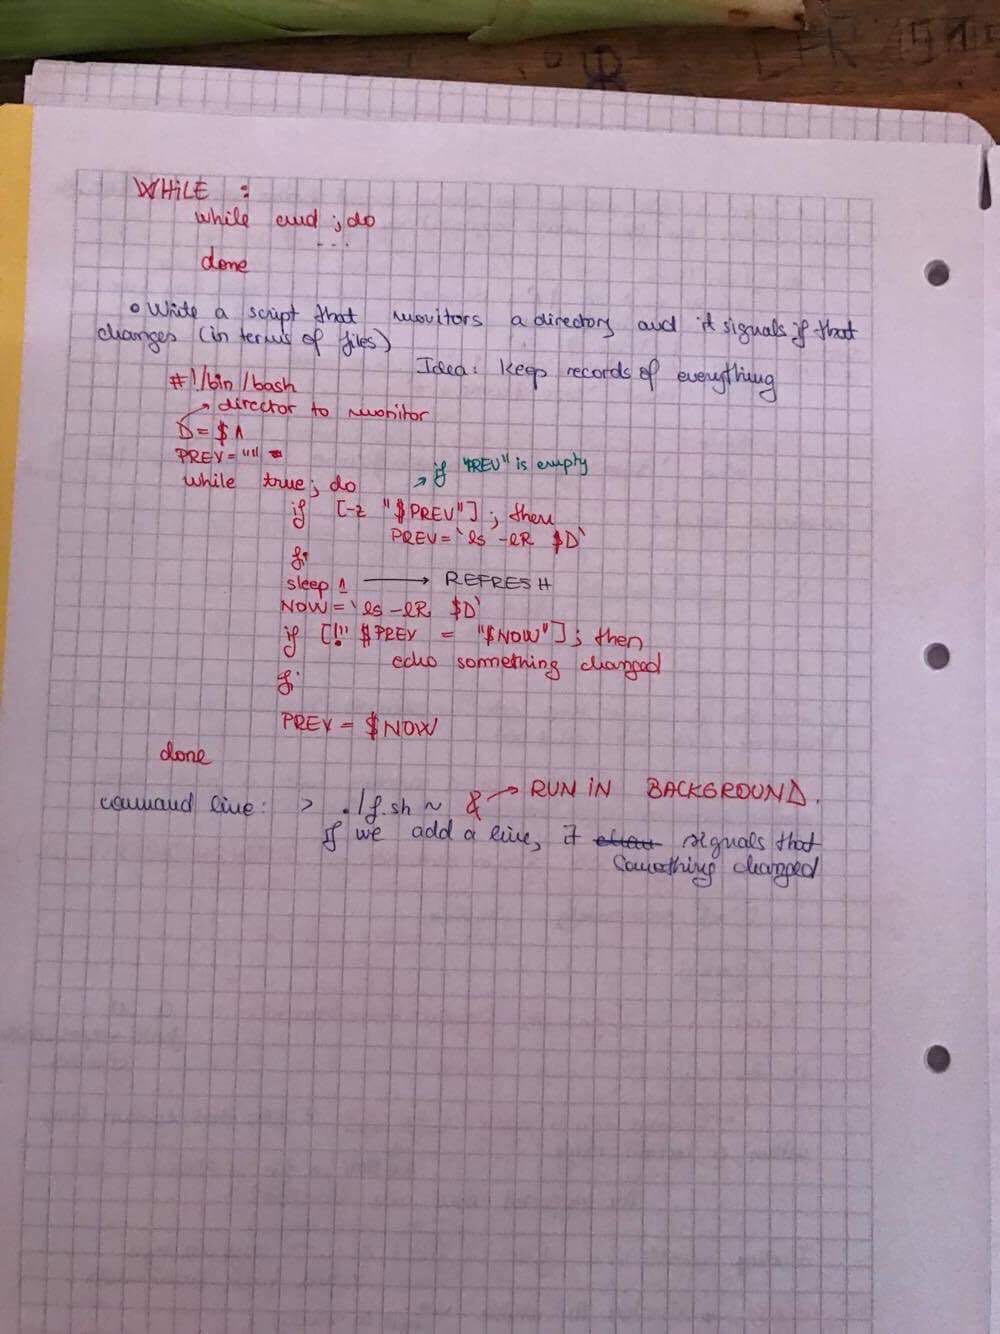 WHILE :
while cmd ; do
...
done
• Write a script that monitors a directory and it signals if that
changes (in terms of files)
Idea: keep records of everything
#!/bin/bash
→ director to monitor
D = $1
PREV = ""
→ if "PREV" is empty
while true; do
if [-z "$PREV"] ; then
PREV = `ls -lR $D`
fi
sleep 1 → REFRESH
NOW = `ls -lR $D`
if [!" $PREV = "$NOW"] ; then
echo somnething changed
fi
PREV = $NOW
done
command line: > ./f.sh ~ & → RUN IN BACKGROUND.
if we add a line, it signals that
something changed